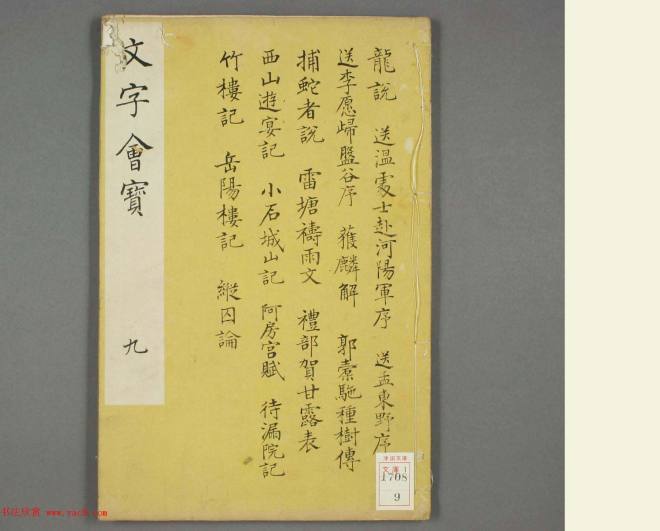 文字會寶
九
龍說 送溫處士赴河陽軍序 送孟東野序
送李愿歸盤谷序 獲麟解 郭橐駞種樹傳
捕蛇者說 雷塘禱雨文 禮部賀甘露表
西山遊宴記 小石城山記 阿房宮賦 待漏院記
竹樓記 岳陽樓記 縱囚論
文庫1
1708
9
书法欣赏 www.yac8.com